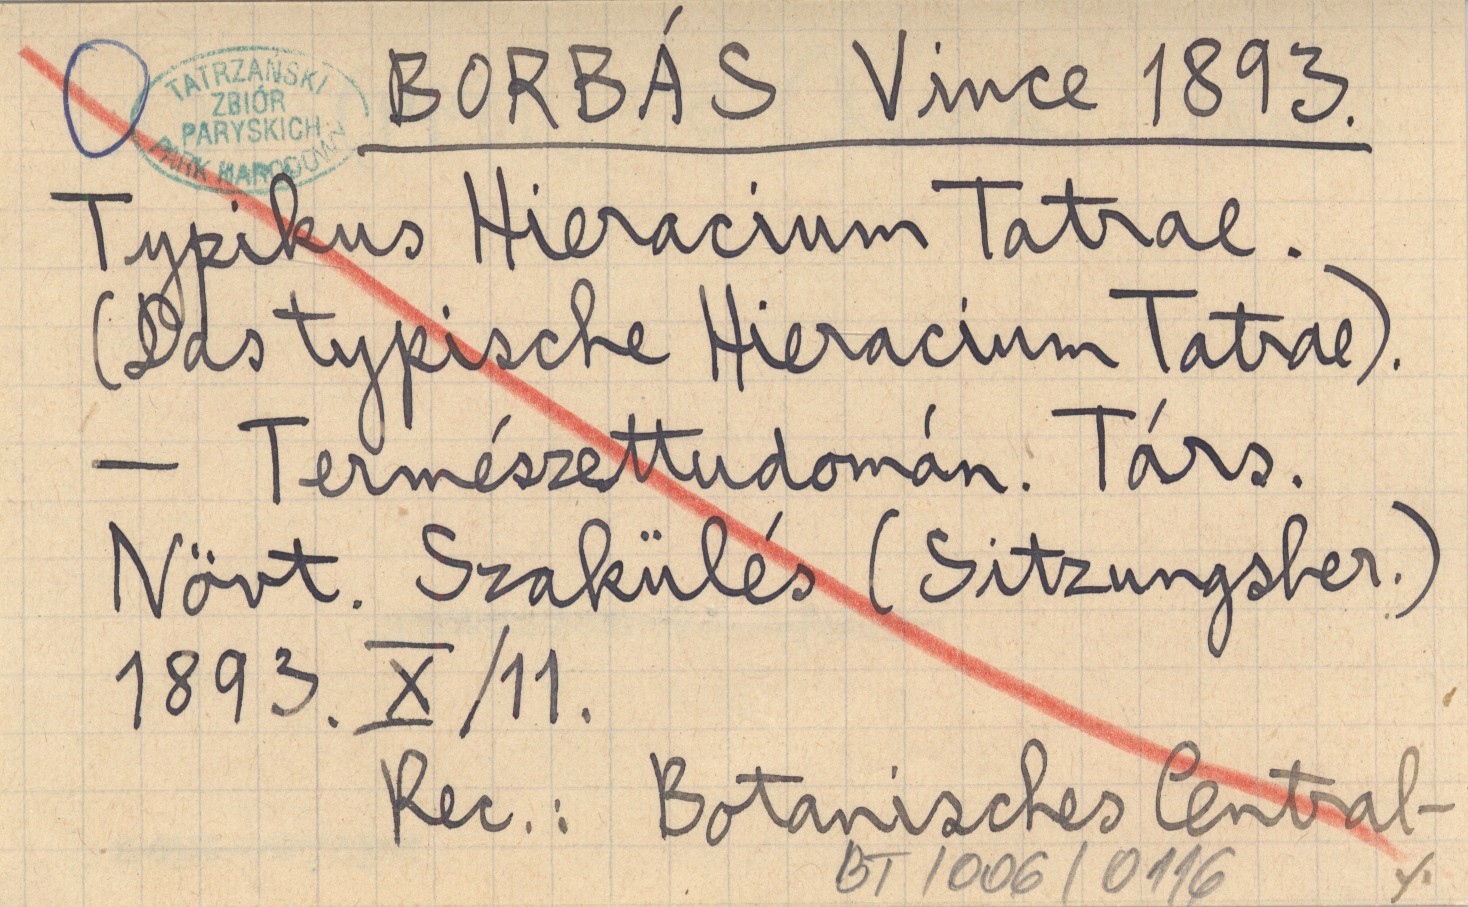 TATRZAŃSKI
ZBIÓR
PARYSKICH
PARK NARODOWY
BORBÁS Vince 1893.
Typikus Hieracium Tatrae.
(Das typische Hieracium Tatrae).
— Természettudomán. Társ.
Növt. Szakülés (Sitzungsber.)
1893. X /11.
Rec.: Botanisches Central-
BT / 006 / 0116